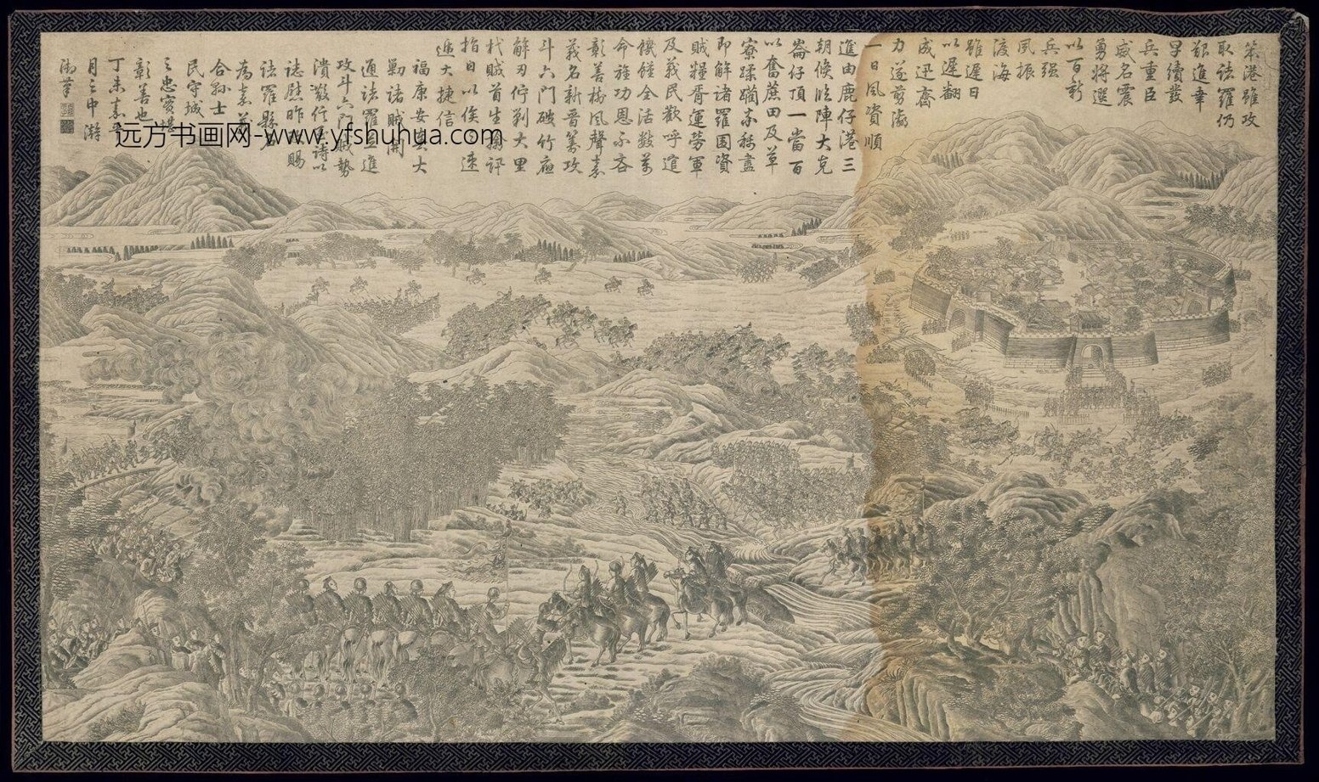 笨港雖攻
取諸羅仍
艱進幸
早續發
兵重臣
威名震
勇將選
以百新
兵強
風振
渡海
雖遲日
以遲翻
成迅齋
力遂剪滅
一日風資順
進由鹿仔港三
朝候臨陣大克
崙仔頂一當百
以奮蔗田及草
寮蹂躪
即解諸羅圍資
賊糧胥運勞軍
及義民歡呼迎
饑饉全活數萬
命旌功恩不吝
彰善樹風聲嘉
義名新晉篡攻
斗六門破竹應
解刃佇剿大里
杙賊首生擒訊
指日以俟速
遞大捷信
福康安奏大
剿諸賊開
通諸羅並進
攻斗六門賊勢
潰散行詩以
誌慰昨賜
諸羅縣名
為嘉義
合孫士
民守城
之忠寔堪
彰善也
丁未嘉平
月之中澣
御筆
远方书画网-www.yfshuhua.com